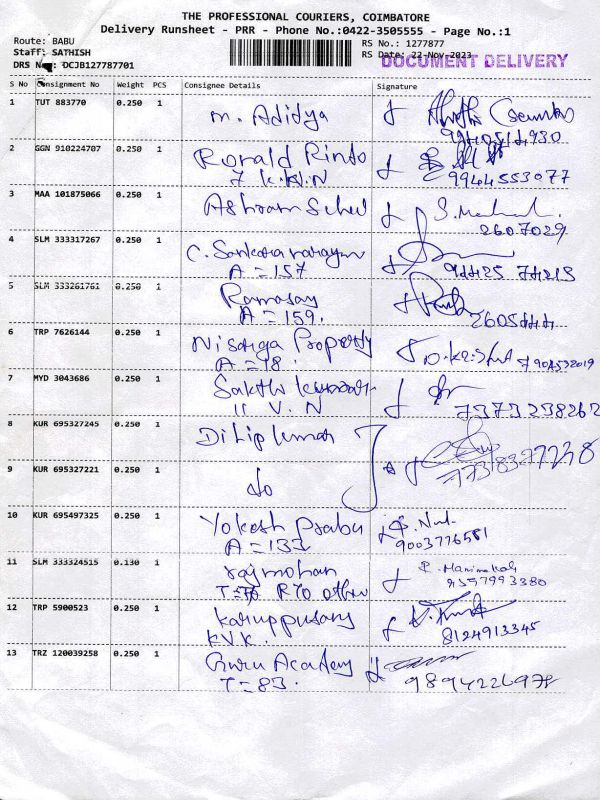 THE PROFESSIONAL COURIERS, COIMBATORE
Delivery Runsheet - PRR - Phone No.:0422-3505555 - Page No.:1
Route: BABU
RS No.: 1277877
Staff: SATHISH
RS Date: 22-Nov-2023
DOCUMENT DELIVERY
DRS No.: DCJB127787701
S No Consignment No Weight PCS Consignee Details Signature
1 TUT 883770 0.250 1 M. Adidya
2 GGN 910224707 0.250 1 Ronald Pinto
7 K.K.N 9944553077
3 MAA 101875066 0.250 1 Ashram School
2607029
4 SLM 333317267 0.250 1 C. Sankaranarayan
A = 157 94425 74213
5 SLM 333261761 0.250 1 Ramasay
A = 159. 2605444
6 TRP 7626144 0.250 1 Nisarga Property
A = 18. 7904532019
7 MYD 3043686 0.250 1 Sakthi Kumar
11 V. N 7373238262
8 KUR 695327245 0.250 1 Dilip Kumar
7738377248
9 KUR 695327221 0.250 1 do
10 KUR 695497325 0.250 1 Yokesh Prabu
A = 133 9003776581
11 SLM 333324515 0.130 1 rajmohan
RTO other 9597993380
12 TRP 5900523 0.250 1 Karuppusamy
KVK. 8124913345
13 TRZ 120039258 0.250 1 Guru Academy
T = 83. 9894226978